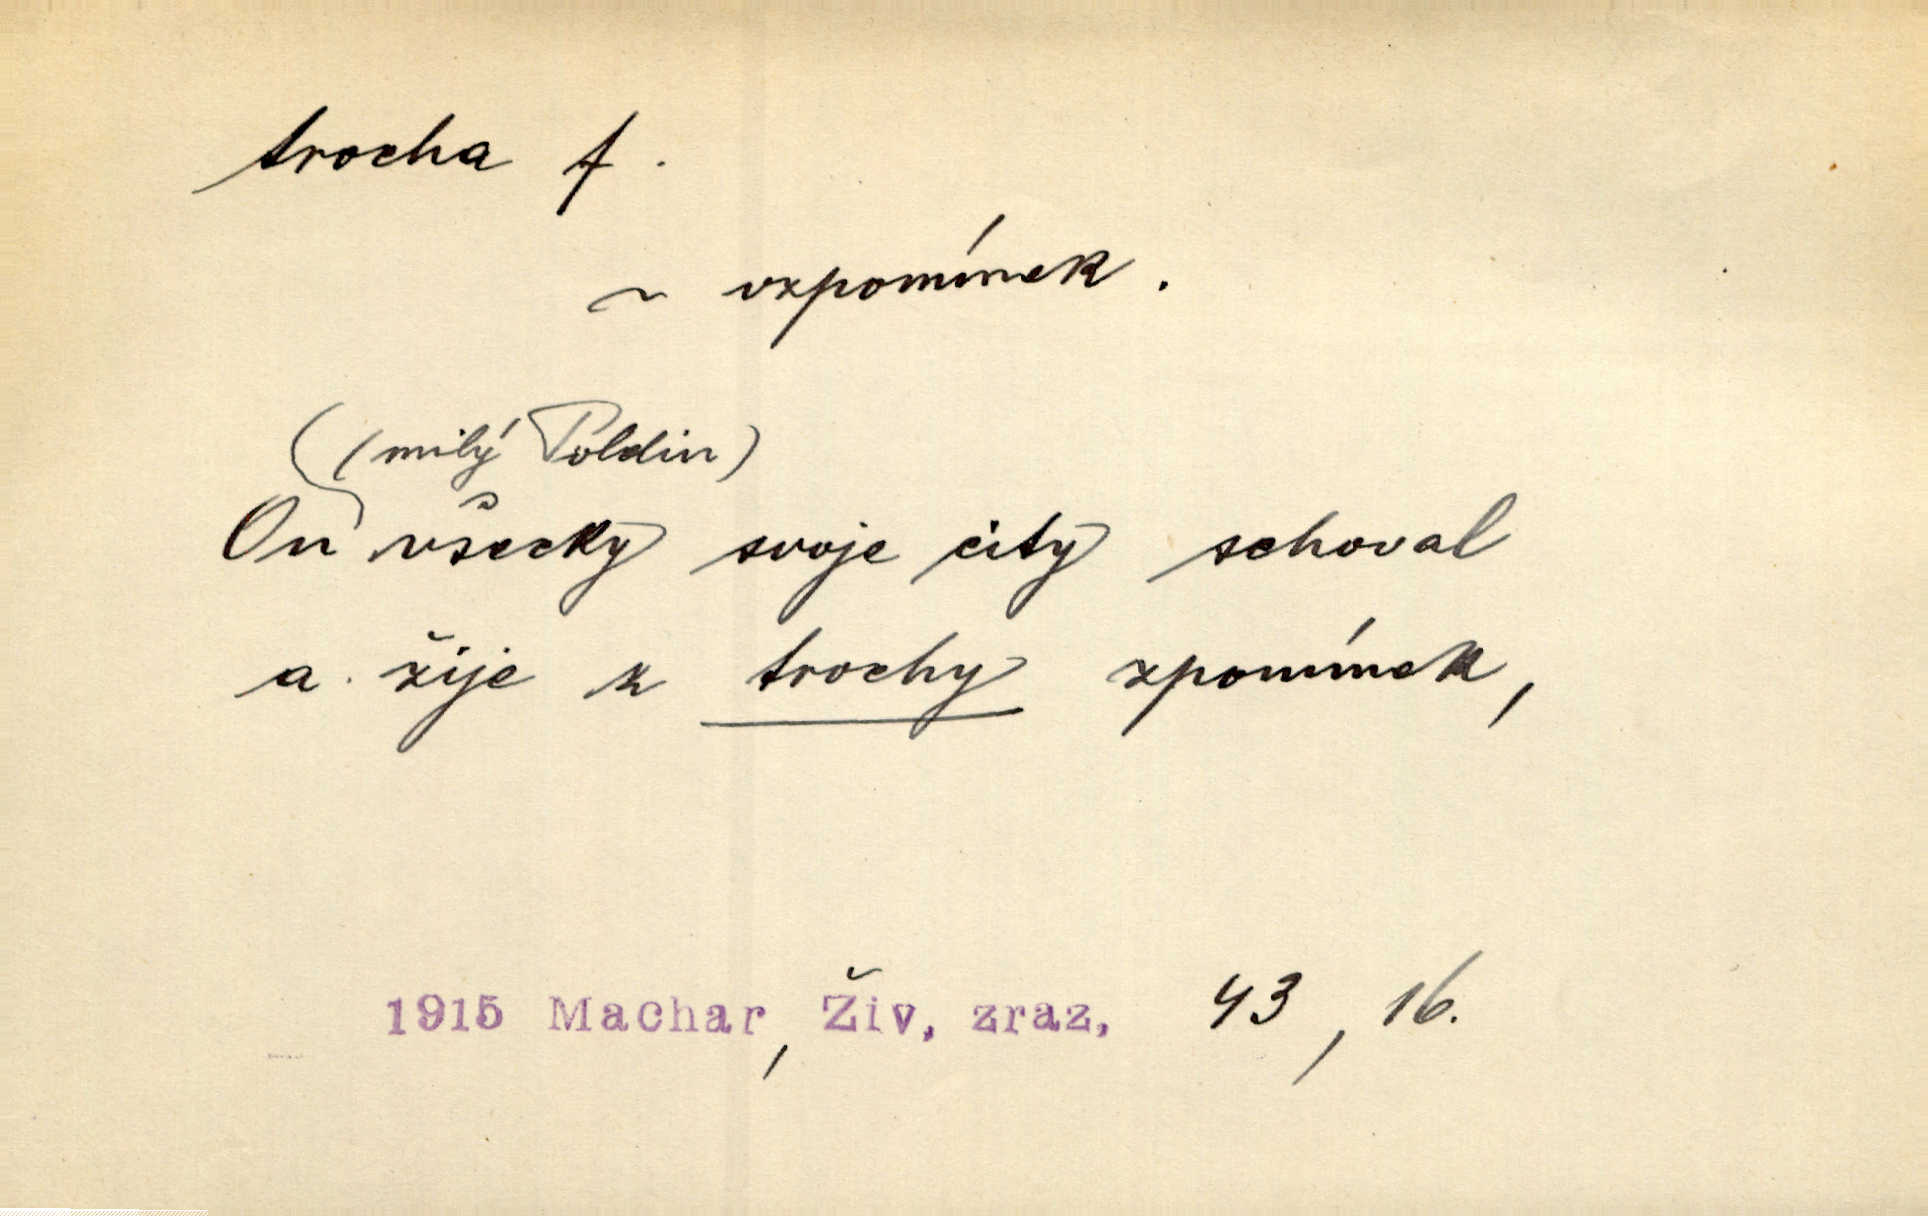 trocha f.
~ vzpomínek.
(milý Poldin)
On všecky svoje city schoval
a žije z trochy zpomínek,
1915 Machar, Živ. zraz, 43, 16.